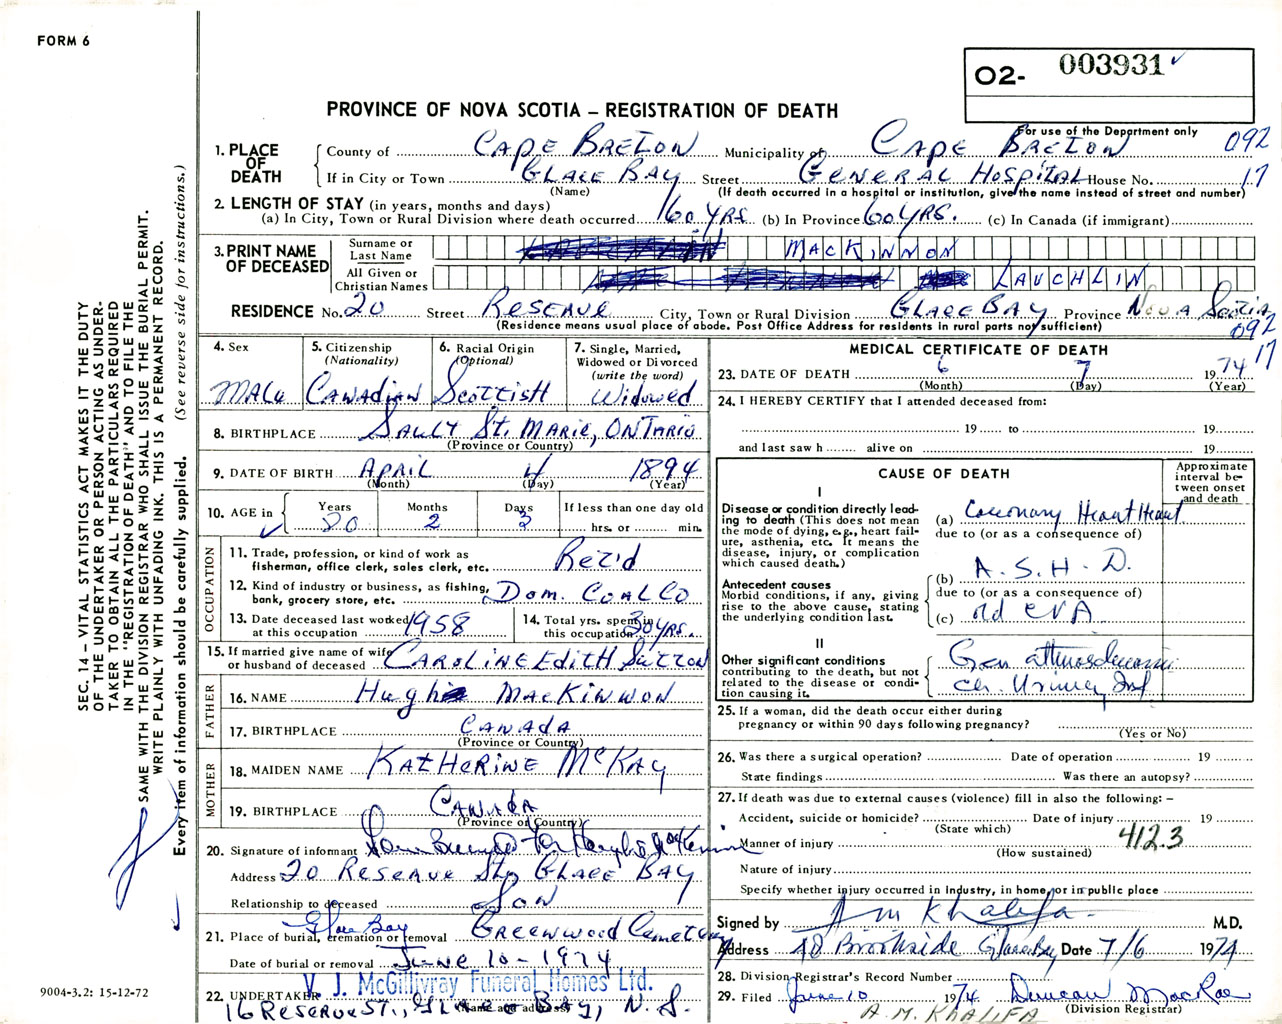 FORM 6
O2- 003931
PROVINCE OF NOVA SCOTIA – REGISTRATION OF DEATH
For use of the Department only
092
17
1. PLACE OF DEATH
County of CAPE BRETON Municipality of CAPE BRETON
If in City or Town GLACE BAY Street GENERAL HOSPITAL House No.
(Name) (If death occurred in a hospital or institution, give the name instead of street and number)
2. LENGTH OF STAY (in years, months and days)
(a) In City, Town or Rural Division where death occurred 60 YRS (b) In Province 60 YRS. (c) In Canada (if immigrant)
3. PRINT NAME OF DECEASED
Surname or Last Name MACKINNON
All Given or Christian Names LAUCHLIN
RESIDENCE No. 20 Street RESERVE City, Town or Rural Division GLACE BAY Province NOVA SCOTIA
(Residence means usual place of abode. Post Office Address for residents in rural parts not sufficient)
092
17
4. Sex
MALE
5. Citizenship (Nationality)
CANADIAN
6. Racial Origin (Optional)
SCOTTISH
7. Single, Married, Widowed or Divorced (write the word)
WIDOWED
8. BIRTHPLACE SAULT ST. MARIE, ONTARIO
(Province or Country)
9. DATE OF BIRTH APRIL 4 1894
(Month) (Day) (Year)
10. AGE in
Years Months Days If less than one day old
80 2 3 hrs. or min.
OCCUPATION
11. Trade, profession, or kind of work as fisherman, office clerk, sales clerk, etc. RET'D
12. Kind of industry or business, as fishing, bank, grocery store, etc. DOM. COAL CO
13. Date deceased last worked at this occupation 1958
14. Total yrs. spent in this occupation 30 YRS.
15. If married give name of wife or husband of deceased CAROLINE EDITH SUTTON
FATHER
16. NAME Hugh MACKINNON
17. BIRTHPLACE CANADA
(Province or Country)
MOTHER
18. MAIDEN NAME KATHERINE McKAY
19. BIRTHPLACE CANADA
(Province or Country)
20. Signature of informant
Address 20 RESERVE ST., GLACE BAY
Relationship to deceased SON
Glace Bay
21. Place of burial, cremation or removal GREENWOOD Cemetery
Date of burial or removal JUNE 10 - 1974
V. J. McGillivray Funeral Homes Ltd.
22. UNDERTAKER
(Name and address)
16 RESERVE ST., GLACE BAY, N.S.
MEDICAL CERTIFICATE OF DEATH
23. DATE OF DEATH 6 7 1974
(Month) (Day) (Year)
24. I HEREBY CERTIFY that I attended deceased from:
19 to 19
and last saw h alive on 19
CAUSE OF DEATH
Approximate interval between onset and death
I
Disease or condition directly leading to death (This does not mean the mode of dying, e.g., heart failure, asthenia, etc. It means the disease, injury, or complication which caused death.)
(a) Coronary Heart
due to (or as a consequence of)
Antecedent causes
Morbid conditions, if any, giving rise to the above cause, stating the underlying condition last.
(b) A.S.H.D.
due to (or as a consequence of)
(c) old CVA
II
Other significant conditions contributing to the death, but not related to the disease or condition causing it.
Gen
Ch. Urinary Inf
25. If a woman, did the death occur either during pregnancy or within 90 days following pregnancy?
(Yes or No)
26. Was there a surgical operation? Date of operation 19
State findings Was there an autopsy?
27. If death was due to external causes (violence) fill in also the following: –
Accident, suicide or homicide? Date of injury 19
(State which)
412.3
Manner of injury
(How sustained)
Nature of injury
Specify whether injury occurred in industry, in home, or in public place
Signed by A M Khalifa M.D.
Address 48 Brookside Glace Bay Date 7/6 1974
28. Division Registrar's Record Number
29. Filed June 10 1974 Duncan MacRae
(Division Registrar)
A.M. KHALIFA
SEC. 14 – VITAL STATISTICS ACT MAKES IT THE DUTY
OF THE UNDERTAKER OR PERSON ACTING AS UNDER-
TAKER TO OBTAIN ALL THE PARTICULARS REQUIRED
IN THE "REGISTRATION OF DEATH" AND TO FILE THE
SAME WITH THE DIVISION REGISTRAR WHO SHALL ISSUE THE BURIAL PERMIT.
WRITE PLAINLY WITH UNFADING INK. THIS IS A PERMANENT RECORD.
Every item of information should be carefully supplied. (See reverse side for instructions.)
9004-3.2: 15-12-72